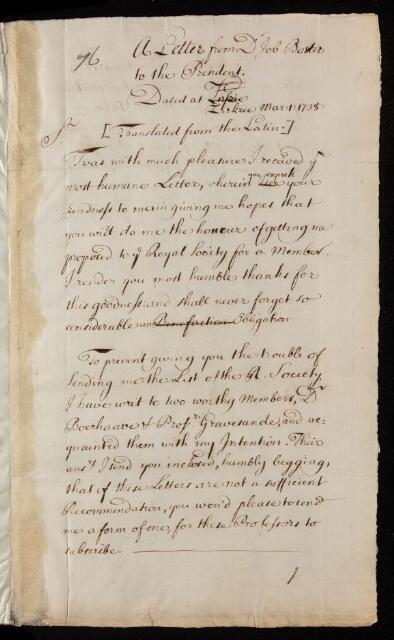 96.
A Letter from Dr. Job Baster
to the President.
Dated at
Zirkzee Mar. 1. 1738.
Sr.
[Translated from the Latin.]
Twas with much pleasure I received ye
most humane Letter, wherein you express your
kindness to me in giving me hopes that
you will do me the honour of getting me
proposed to ye Royal Society for a Member.
I render you most humble thanks for
this goodness: and shall never forget so
considerable an Benefaction Obligation
To prevent giving you the trouble of
sending me the List of the R. Society
I have writ to two worthy Members, Dr
Boerhaave & Profr. Gravesande, and ac-
quainted them with my Intention. Their
ansrs I send you inclosed, humbly begging,
that if these Letters are not a sufficient
Recommendation, you wou'd please to send
me a form of one, for these Professors to
subscribe.